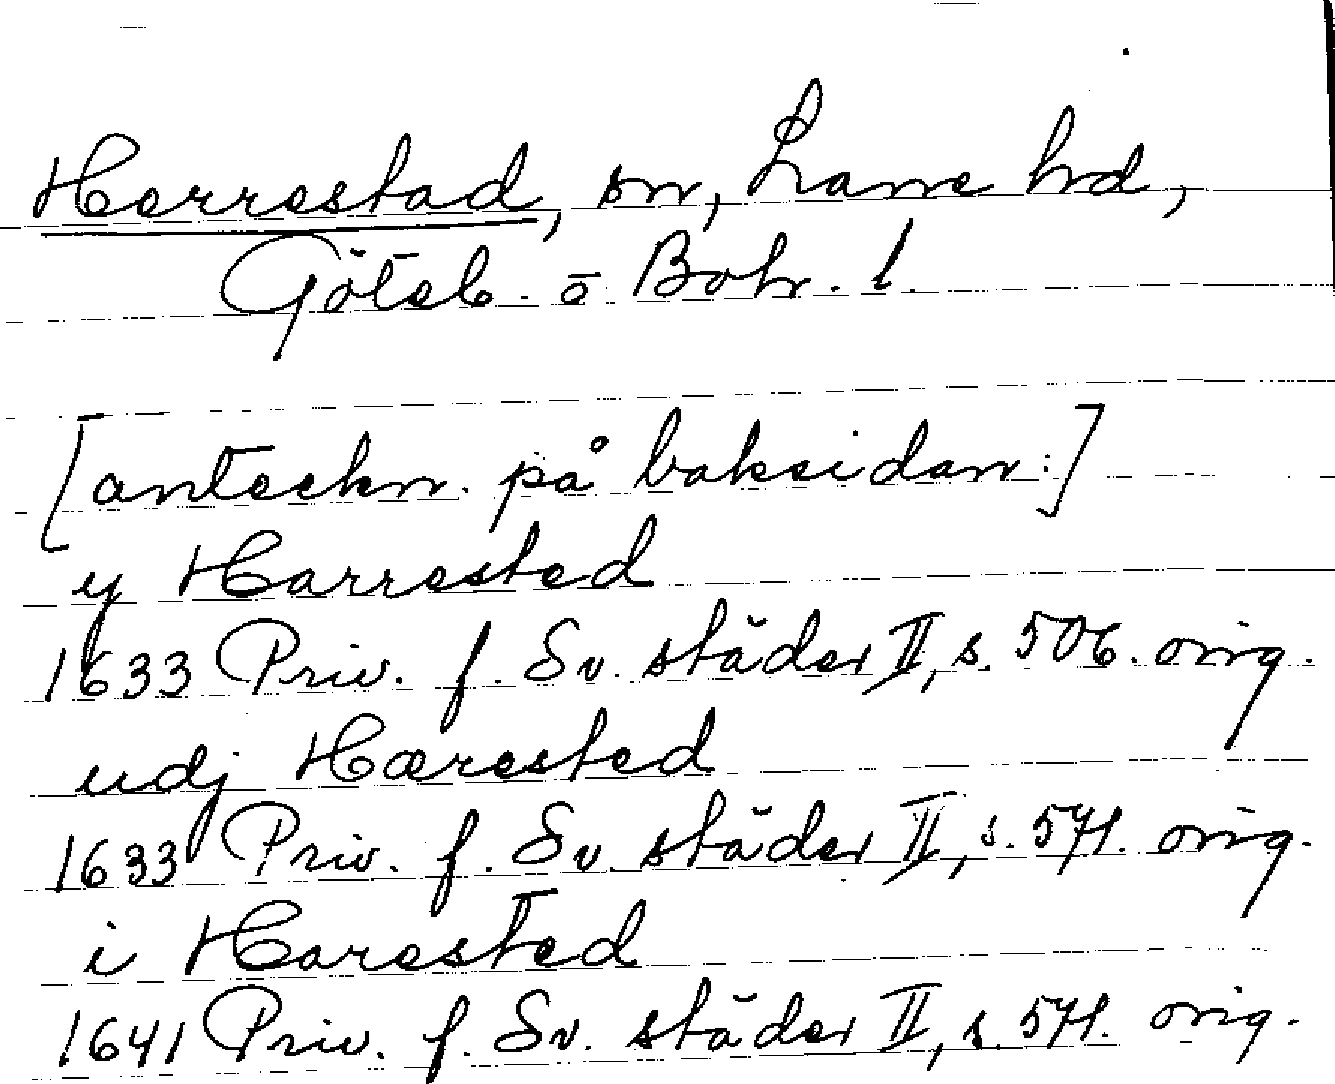 Herrestad, sn, Lane hd,
Göteb. o Boh. l.
[anteckn. på baksidan:]
y Harrested
1633 Priv. f. Sv. städer II, s. 506. orig.
udj Hærested
1633 Priv. f. Sv. städer II, s. 571. orig.
i Harested
1641 Priv. f. Sv. städer II, s. 571. orig.